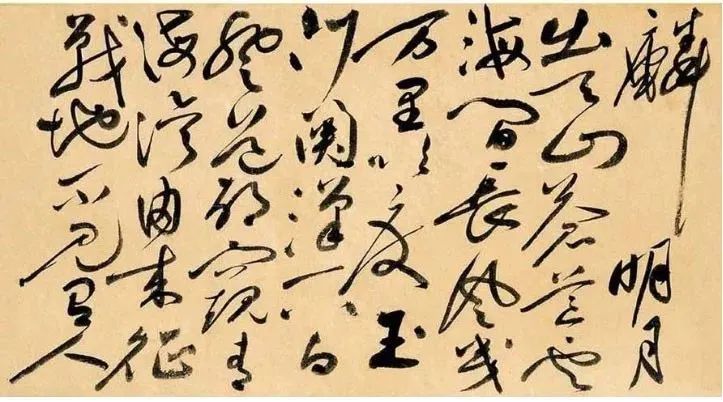 麟 明月
出天山蒼茫雲
海間長風幾
万里吹度玉
门関漢下白
登道胡窺青
海湾由来征
戰地不見有人